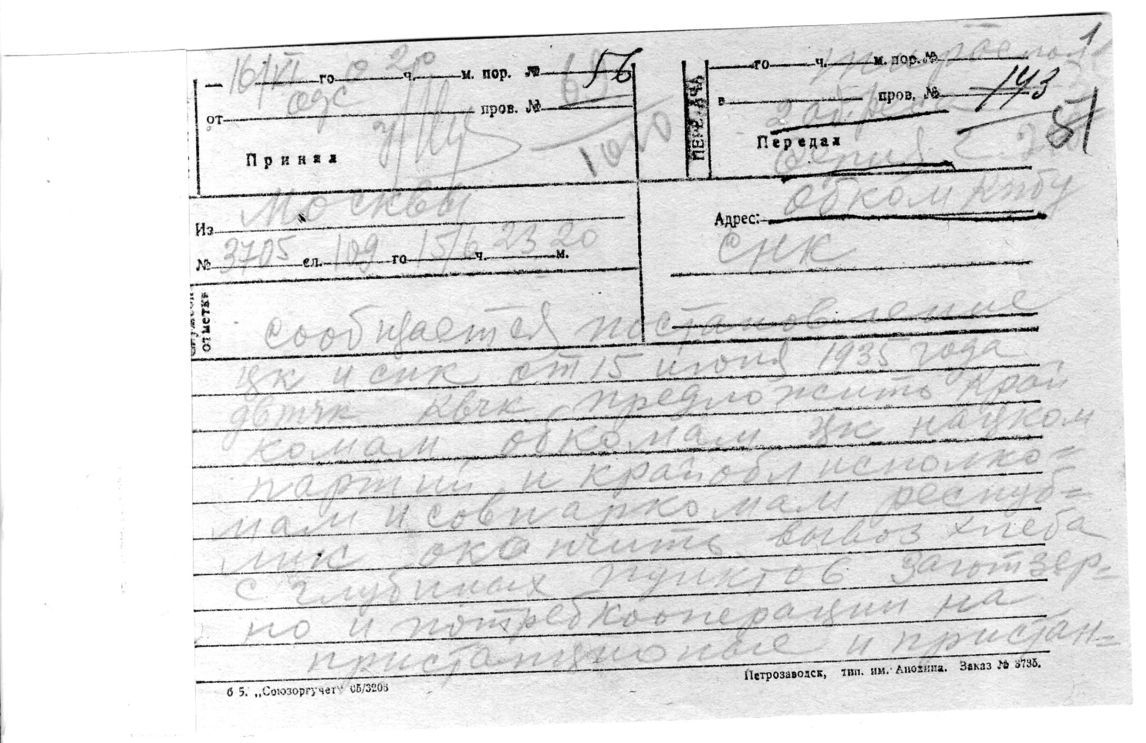 1
16/VI го 0 ч. 20 м. пор. № 56
от провер. №
Принял
1010
ПЕРЕДАЧА
го ч. м. пор. №
в пров. № 143
Передал
51
Из Москвы
№ 3705 сл. 109 го 15/6 ч. 23 20 м.
Адрес: Обком КПбу
СНК
отметки
сообщается постановление
цк и снк от 15 июня 1935 года
двтчк квчк предложить край
комам обкомам цк нацком
партий и крайоблисполко=
мам и совнаркомам респуб=
лик окончить вывоз хлеба
с глубинных пунктов заготзер=
но и потребкооперации на
пристанционные и пристан=
б 5. „Союзоргучет" 05/3206
Петрозаводск, тип. им. Анохина. Заказ № 3735.